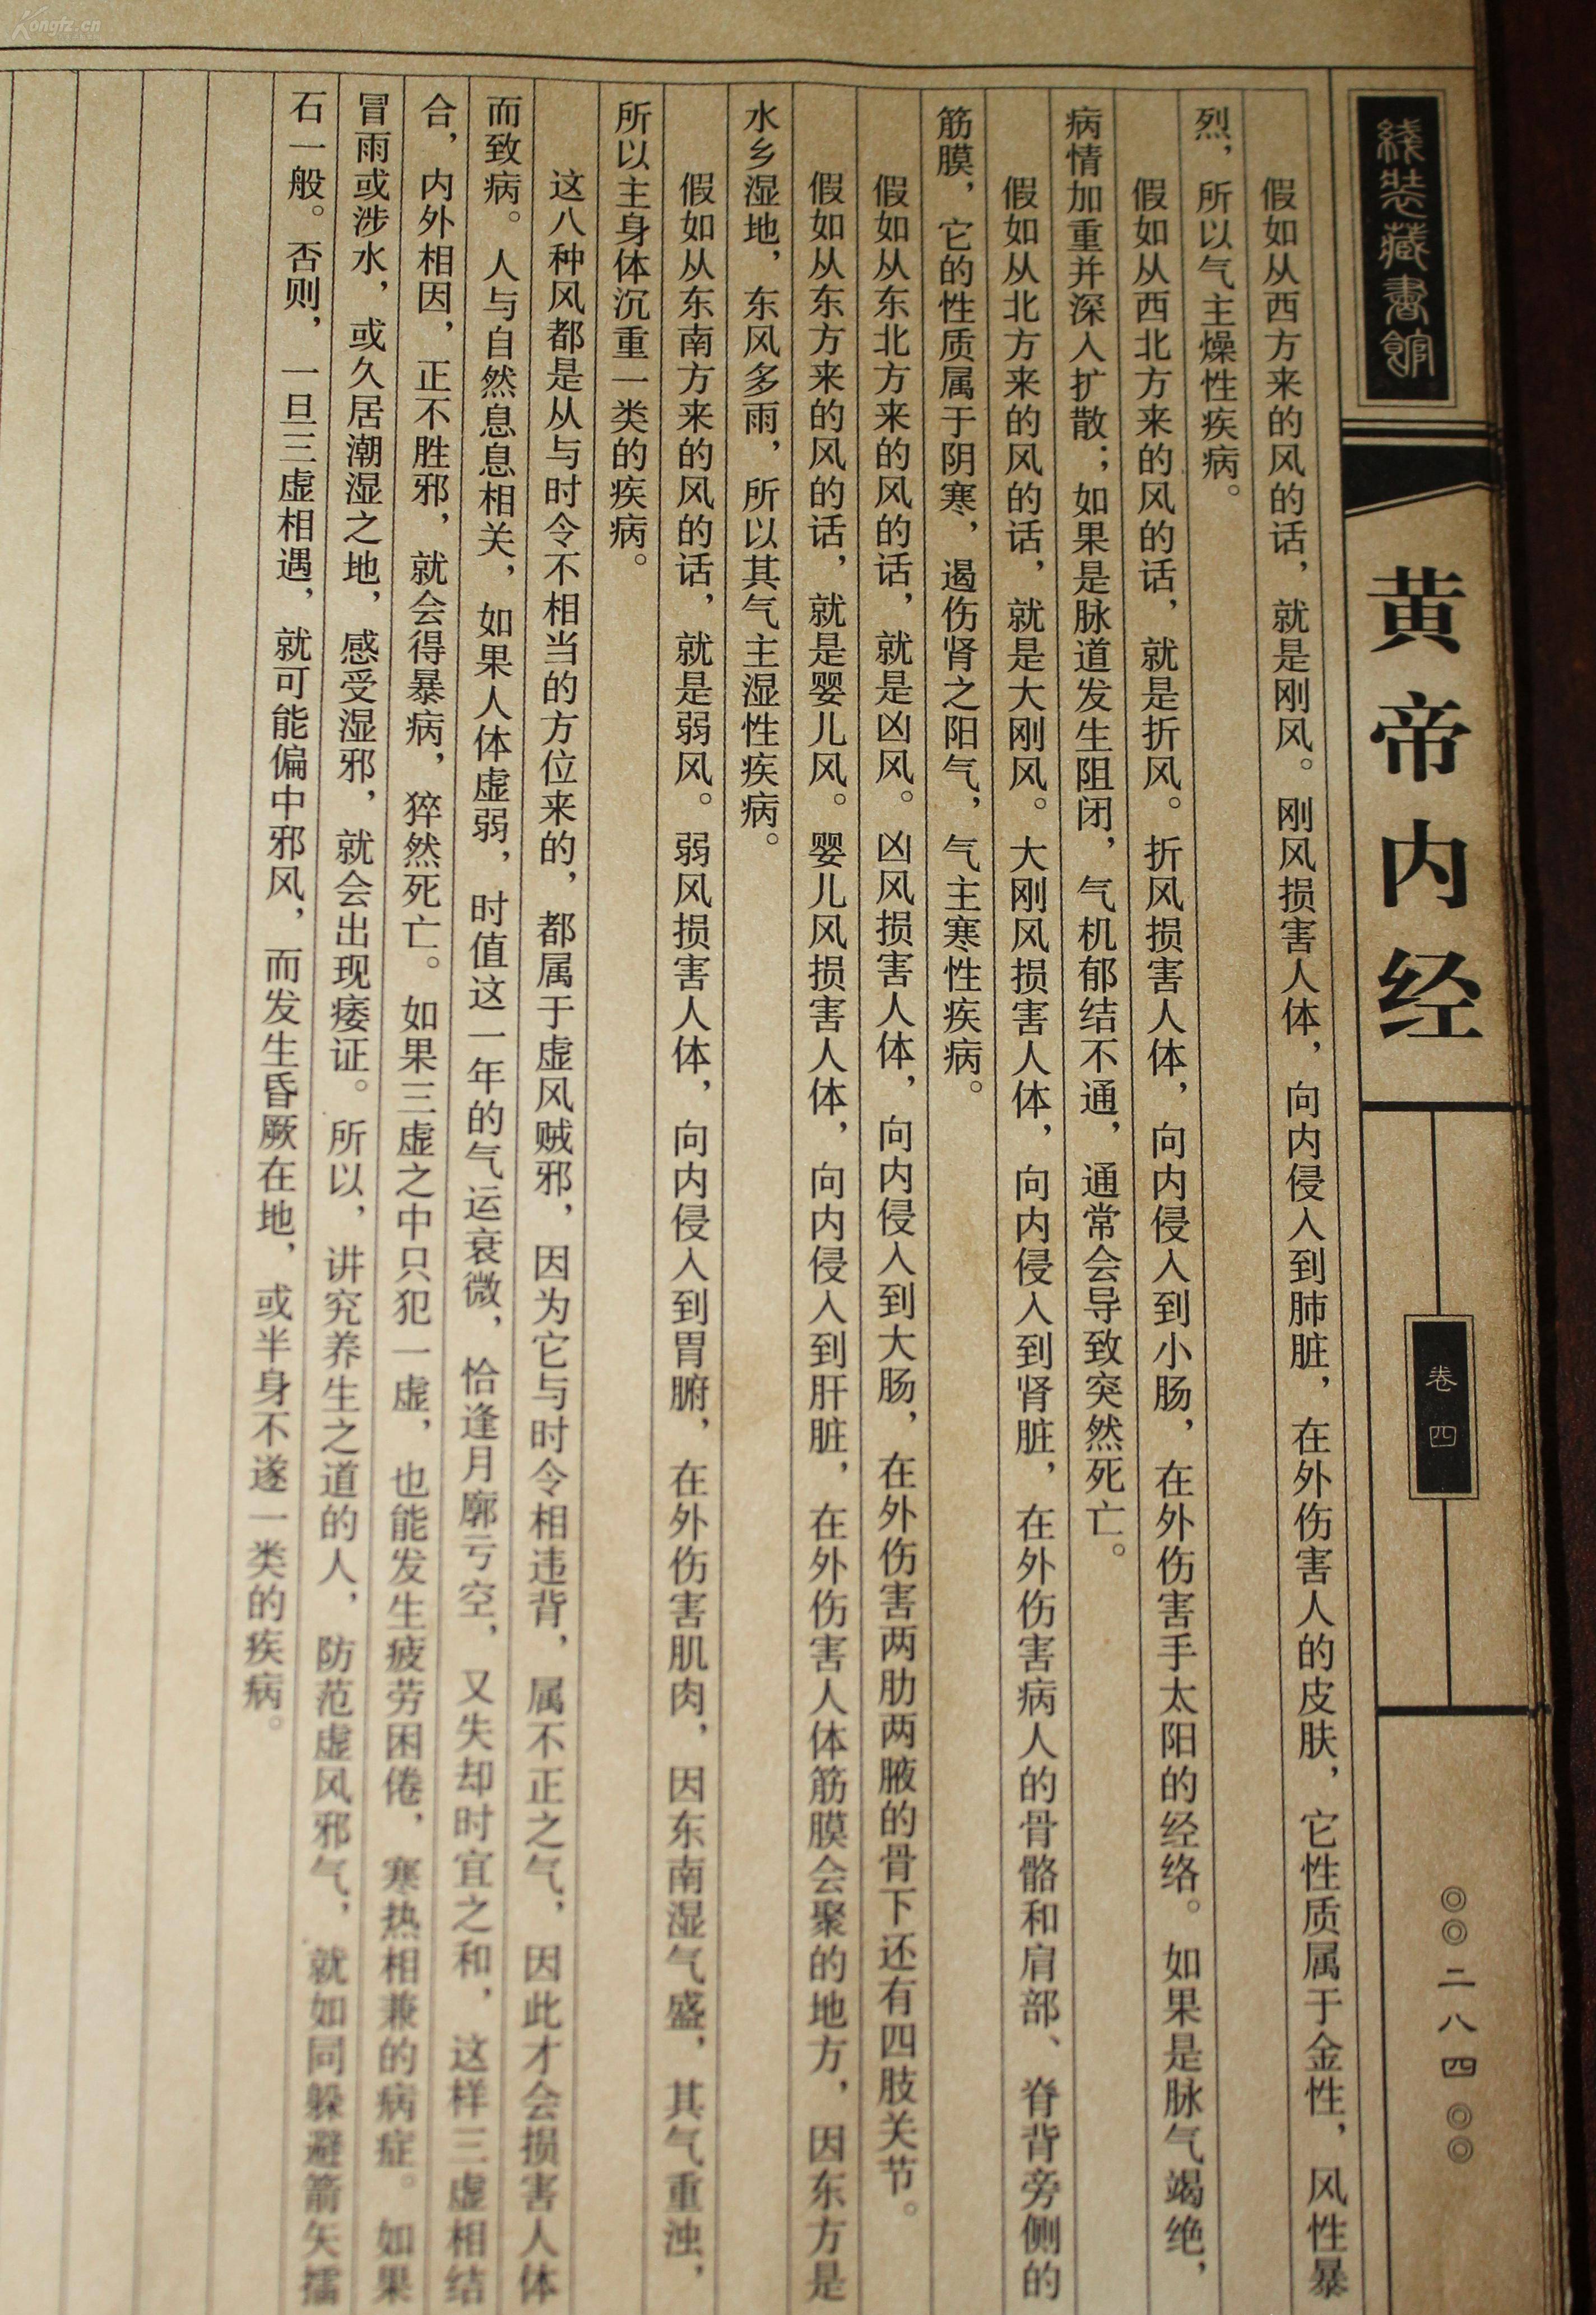 Kongfz.cn
线装藏书馆
黄帝内经
卷四
◎◎二八四◎◎
假如从西方来的风的话，就是刚风。刚风损害人体，向内侵入到肺脏，在外伤害人的皮肤，它性质属于金性，风性暴
烈，所以气主燥性疾病。
假如从西北方来的风的话，就是折风。折风损害人体，向内侵入到小肠，在外伤害手太阳的经络。如果是脉气竭绝，
病情加重并深入扩散；如果是脉道发生阻闭，气机郁结不通，通常会导致突然死亡。
假如从北方来的风的话，就是大刚风。大刚风损害人体，向内侵入到肾脏，在外伤害病人的骨骼和肩部、脊背旁侧的
筋膜，它的性质属于阴寒，遏伤肾之阳气，气主寒性疾病。
假如从东北方来的风的话，就是凶风。凶风损害人体，向内侵入到大肠，在外伤害两肋两腋的骨下还有四肢关节。
假如从东方来的风的话，就是婴儿风。婴儿风损害人体，向内侵入到肝脏，在外伤害人体筋膜会聚的地方，因东方是
水乡湿地，东风多雨，所以其气主湿性疾病。
假如从东南方来的风的话，就是弱风。弱风损害人体，向内侵入到胃腑，在外伤害肌肉，因东南湿气盛，其气重浊，
所以主身体沉重一类的疾病。
这八种风都是从与时令不相当的方位来的，都属于虚风贼邪，因为它与时令相违背，属不正之气，因此才会损害人体
而致病。人与自然息息相关，如果人体虚弱，时值这一年的气运衰微，恰逢月廓亏空，又失却时宜之和，这样三虚相结
合，内外相因，正不胜邪，就会得暴病，猝然死亡。如果三虚之中只犯一虚，也能发生疲劳困倦，寒热相兼的病症。如果
冒雨或涉水，或久居潮湿之地，感受湿邪，就会出现痿证。所以，讲究养生之道的人，防范虚风邪气，就如同躲避箭矢擂
石一般。否则，一旦三虚相遇，就可能偏中邪风，而发生昏厥在地，或半身不遂一类的疾病。